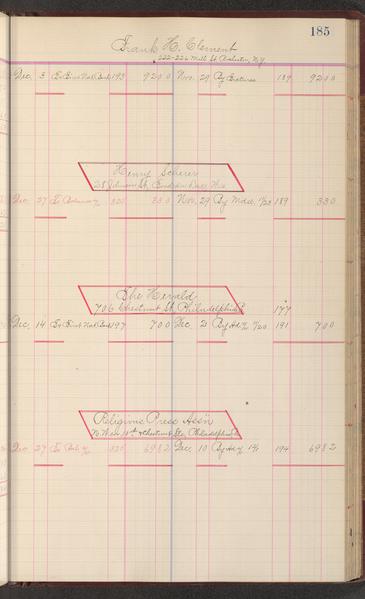 185
Frank H. Clement
222-226 Mill St. Rochester, N.Y.
Dec. 3 To First Nat. Bank 193 9200 Nov. 29 By Fixtures 189 9200
Henry Scherer
Dec. 27 To Balance 200 330 Nov. 29 By Mdse. 189 330
The Herald
706 Chestnut St. Philadelphia 177
Dec. 14 To First Nat. Bank 197 700 Dec. 2 By Adv. 191 700
Religious Press Ass'n
Chestnut Sts, Philadelphia
Dec. 27 To Bal. 200 6982 Dec. 10 By Adv. 194 6982